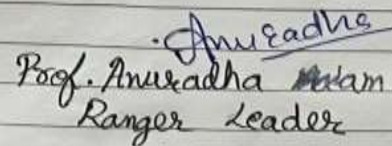 Anuradha
Prof. Anuradha
Ranger Leader